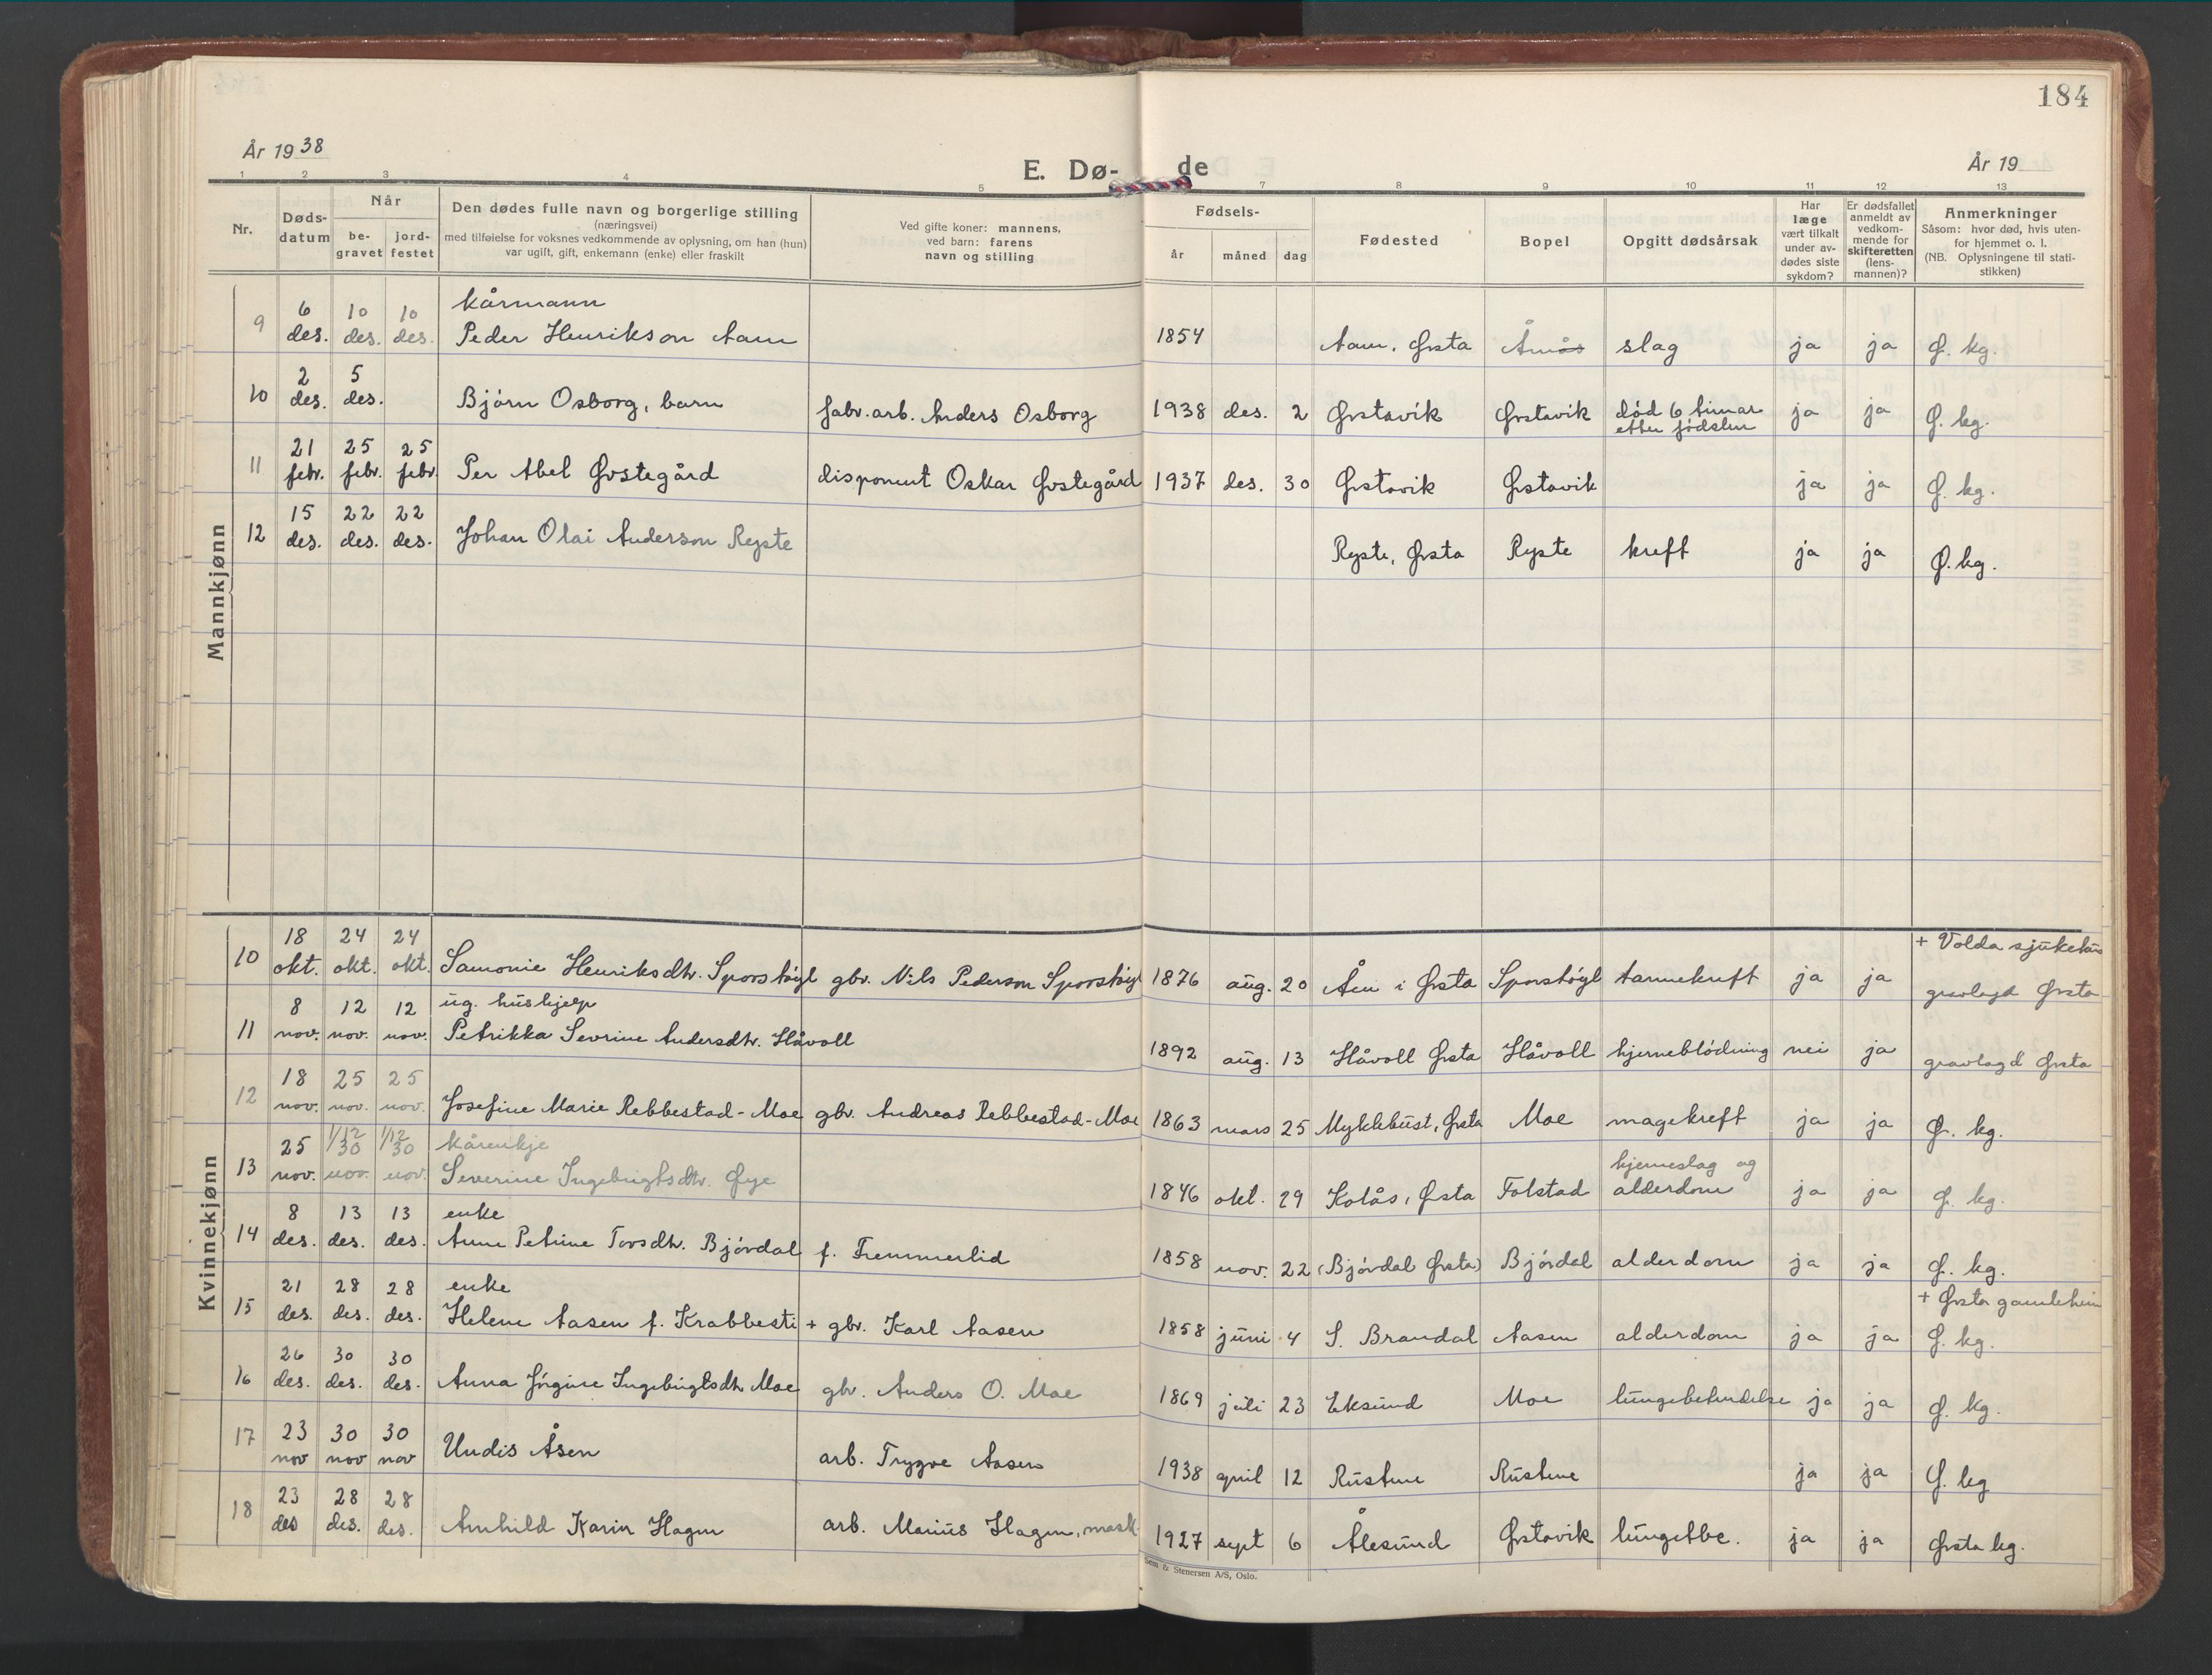 184
År 1938
E. Dø-
de
År 19
1 2 3 4 5 7 8 9 10 11 12 13
Nr.
Døds-
datum
Når
be-
gravet
jord-
festet
Den dødes fulle navn og borgerlige stilling
(næringsvei)
med tilføielse for voksnes vedkommende av oplysning, om han (hun)
var ugift, gift, enkemann (enke) eller fraskilt
Ved gifte koner: mannens,
ved barn: farens
navn og stilling
Fødsels-
år måned dag
Fødested
Bopel
Opgitt dødsårsak
Har
læge
vært tilkalt
under av-
dødes siste
sykdom?
Er dødsfallet
anmeldt av
vedkom-
mende for
skifteretten
(lens-
mannen)?
Anmerkninger
Såsom: hvor død, hvis uten-
for hjemmet o. l.
(NB. Oplysningene til stati-
stikken)
Mannkjønn
6 10 10 kårmann
9 des. des. des. Peder Henrikson Aam 1854 Aam, Ørsta slag ja ja Ø. kg.
2 5
10 des. des. Bjørn Osborg, barn fabr.arb. Anders Osborg 1938 des. 2 Ørstavik Ørstavik død 6 timar ja ja Ø. kg.
etter fødslen
21 25 25
11 febr. febr. febr. Per Abel Ørstegård disponent Oskar Ørstegård 1937 des. 30 Ørstavik Ørstavik ja ja Ø. kg.
15 22 22
12 des. des. des. Johan Olai Anderson Ryste Ryste, Ørsta Ryste kreft ja ja Ø. kg.
Kvinnekjønn
18 24 24 + Volda sjukehus
10 okt. okt. okt. Samonie Henriksdtr. Sporstøyl gbr. Nils Pederson Sporstøyl 1876 aug. 20 Åm i Ørsta Sporstøyl tarmekreft ja ja gravlagd Ørsta
8 12 12 ug. hushjelp
11 nov. nov. nov. Petrikka Sevrine Andersdtr. Håvoll 1892 aug. 13 Håvoll Ørsta Håvoll hjerneblødning nei ja gravlagd Ørsta
18 25 25
12 nov. nov. nov. Josefine Marie Rebbestad-Moe gbr. Andreas Rebbestad-Moe 1863 mars 25 Myklebust, Ørsta Moe magekreft ja ja Ø. kg.
25 1/12 30 1/12 30 kårenkje hjerneslag og
13 nov. nov. nov. Severine Ingebrigtsdtr. Øye 1846 okt. 29 Kolås, Ørsta Folstad alderdom ja ja Ø. kg.
8 13 13 enke
14 des. des. des. Anne Petrine Torsdtr. Bjørdal f. Fremmerlid 1858 nov. 22 (Bjørdal Ørsta) Bjørdal alderdom ja ja Ø. kg.
21 28 28 enke + Ørsta gamleheim
15 des. des. des. Helene Aasen f. Krabbesti + gbr. Karl Aasen 1858 juni 4 S. Brandal Aasen alderdom ja ja Ø. kg.
26 30 30
16 des. des. des. Anna Jørgine Ingebrigtsdtr Moe gbr. Anders O. Moe 1869 juli 23 Eksund Moe lungebetendelse ja ja Ø. kg.
23 30 30
17 nov nov nov Undis Åsen arb. Trygve Aasen 1938 april 12 Rustene Rustene ja ja Ø. kg
23 28 28
18 des des. des. Arnhild Karin Hagen arb. Marius Hagen, mask. 1927 sept 6 Ålesund Ørstavik lungetbc. ja ja Ørsta kg.
Sem & Stenersen A/S, Oslo.